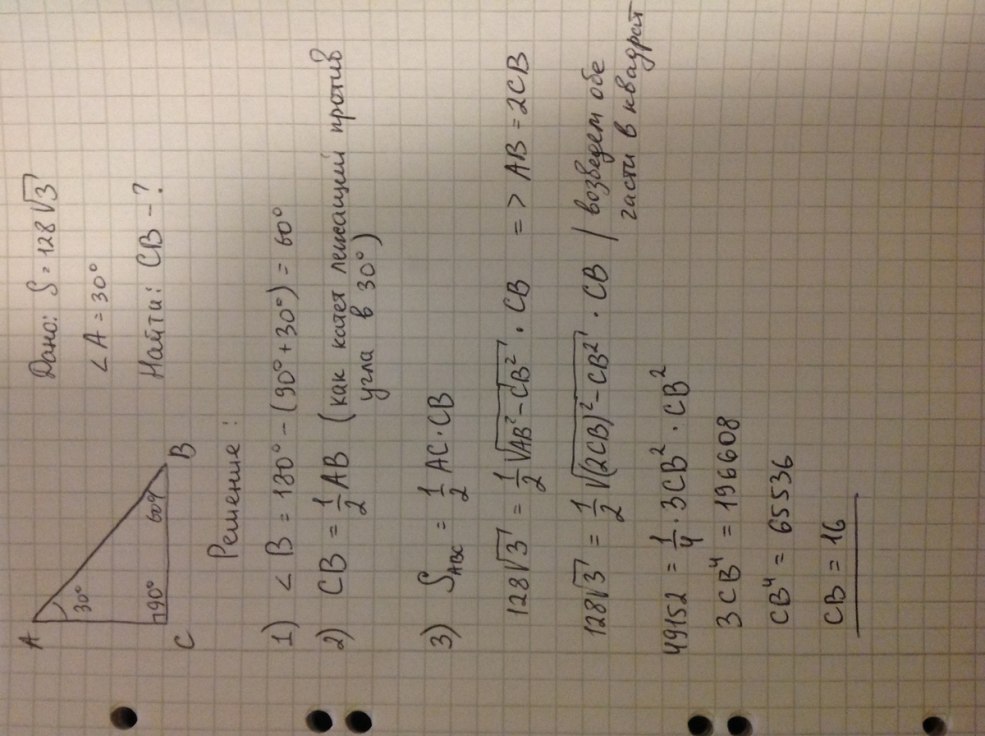 Дано: S = 128√3
∠A = 30°
Найти: CB - ?
A
30°
90°
60°
C
B
Решение:
1) ∠B = 180° - (90° + 30°) = 60°
2) CB = 1/2 AB (как катет лежащий против
угла в 30°)
3) S_ABC = 1/2 AC · CB
128√3 = 1/2 √(AB² - CB²) · CB => AB = 2CB
128√3 = 1/2 √((2CB)² - CB²) · CB | возведем обе
части в квадрат
49152 = 1/4 · 3CB² · CB²
3CB⁴ = 196608
CB⁴ = 65536
CB = 16